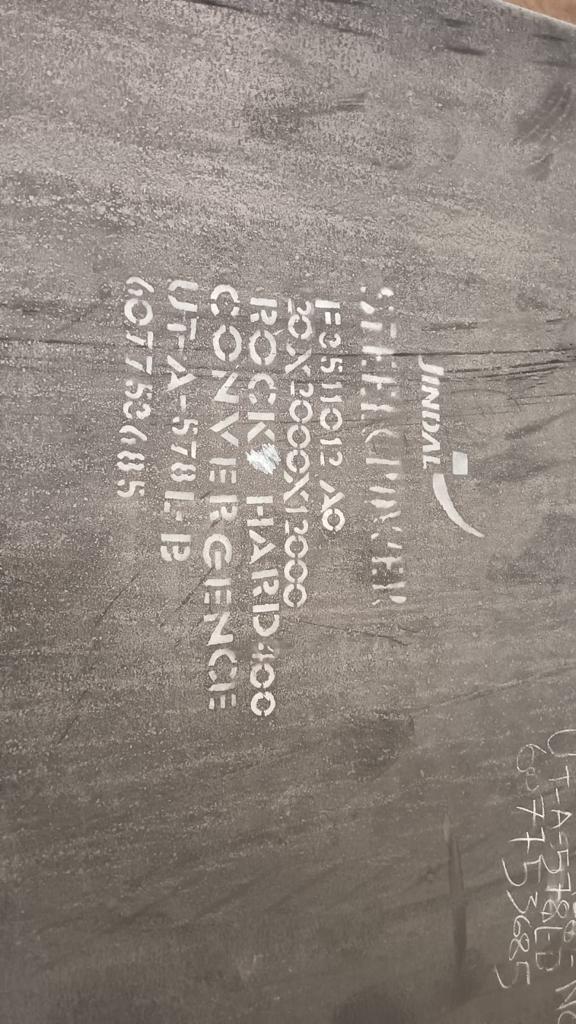 JINDAL
STEEL & POWER
20X2000X12000
ROCK HARD 400
CONVERGENCE
UT-A-578L-B
607753685
UT-A-578L-B
607753685